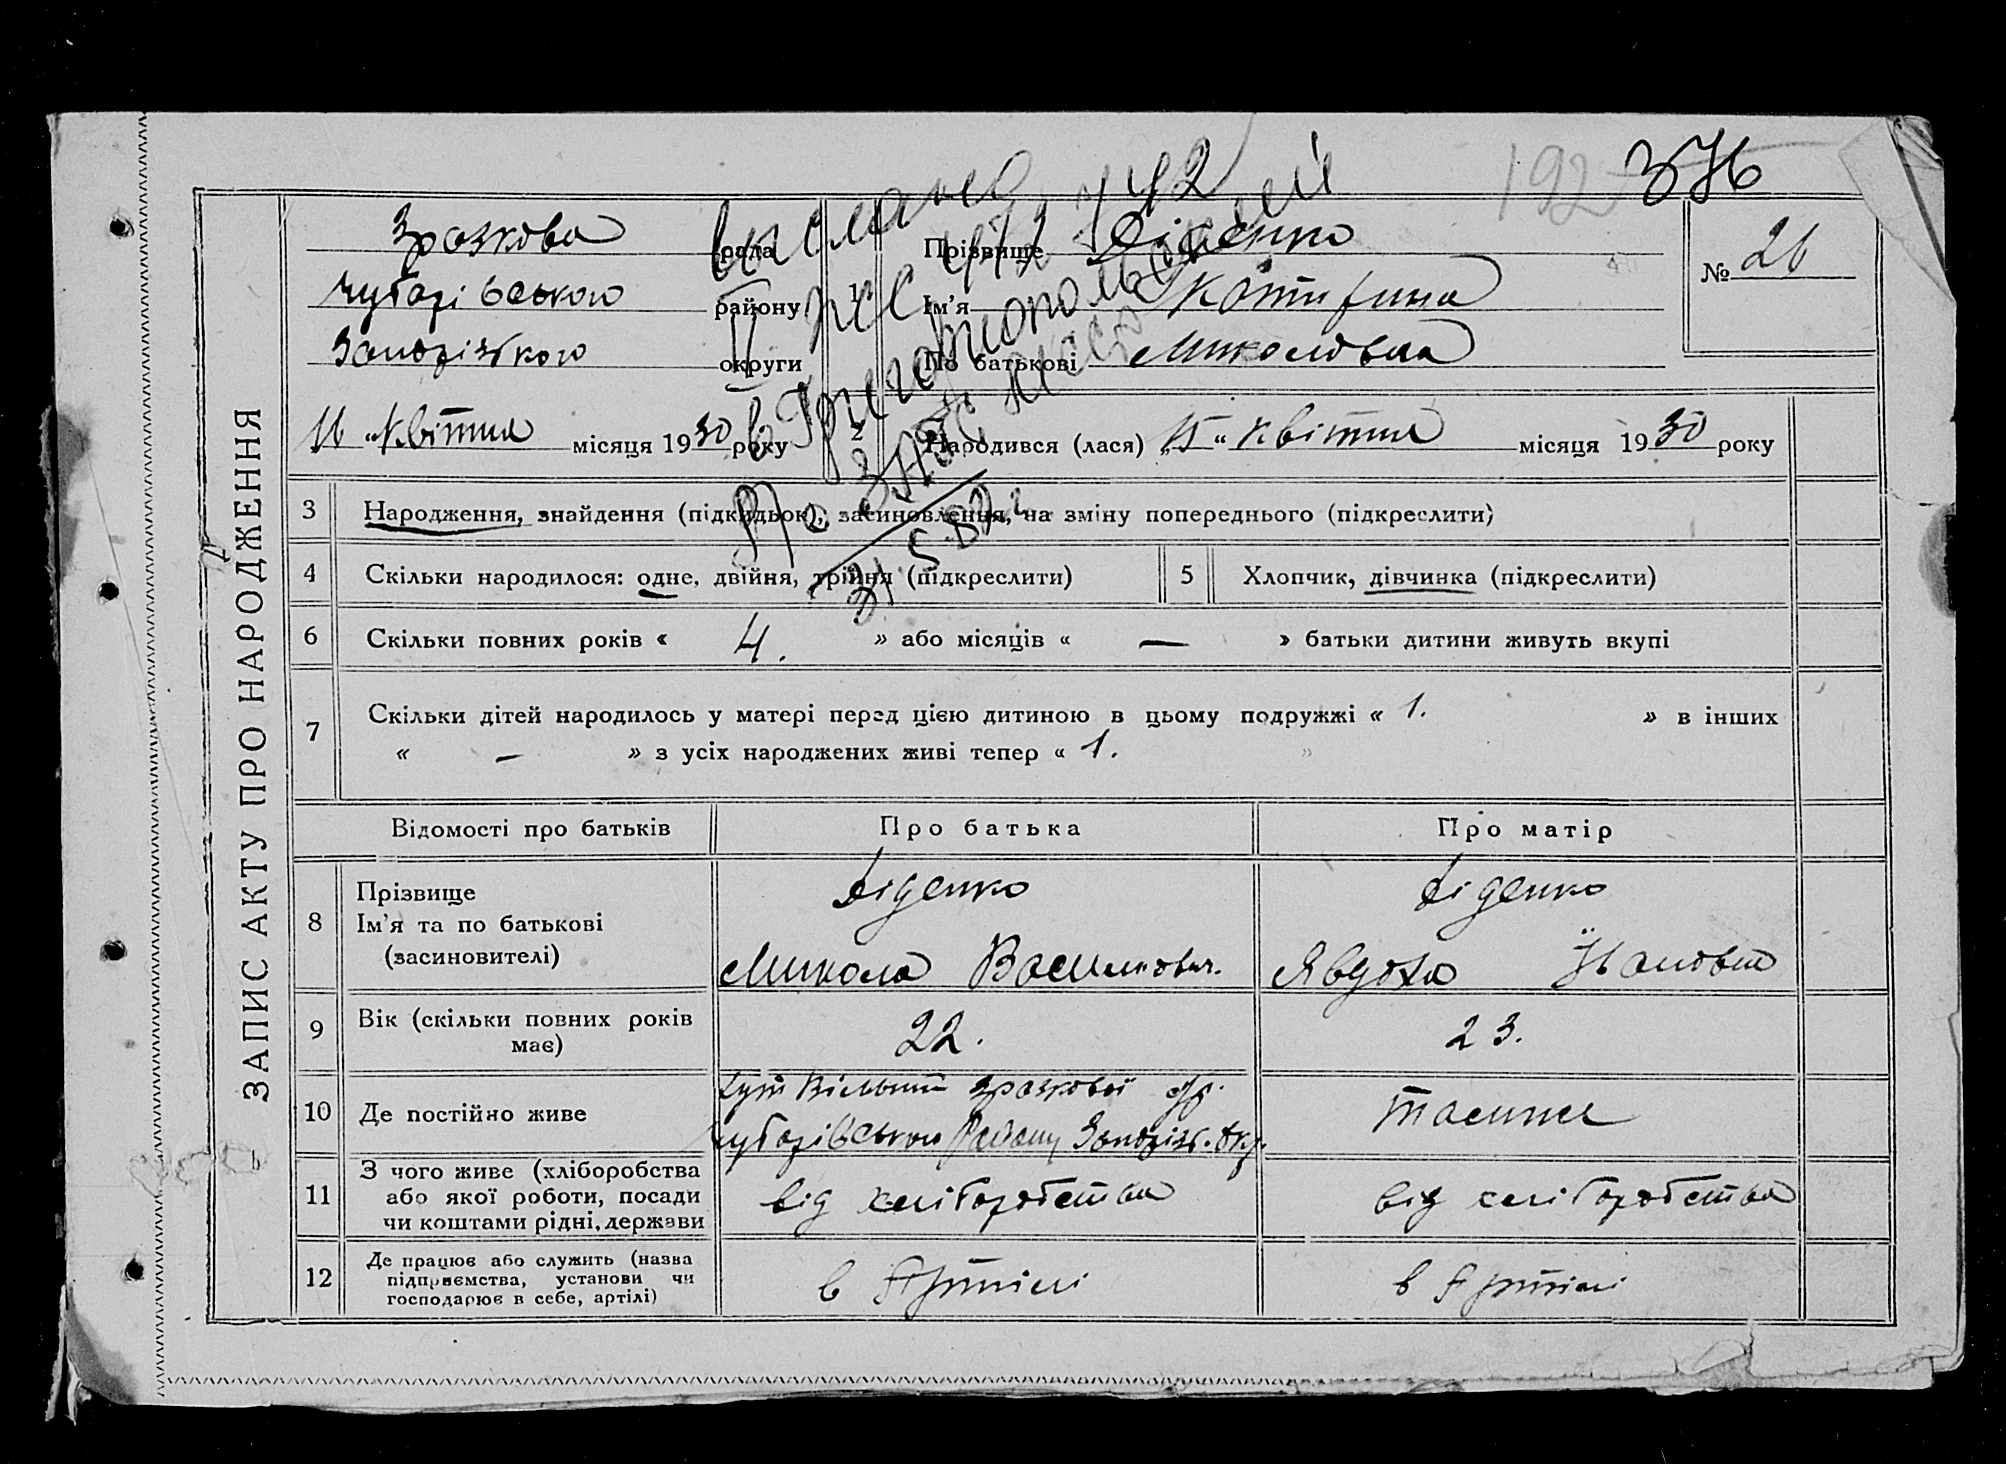 192
376
Зразкова рада
Чубарівського району
Запорізького округи
1
Прізвище Діденко
Ім'я Катирина
По батькові Миколовна
№ 26
Вислано
ІІ
442
в Григориопольский
ЗАГС
31.5.82 г
16 „ Квітня місяця 1930 року
2
Народився (лася) „ 15 “ Квітня місяця 1930 року
ЗАПИС АКТУ ПРО НАРОДЖЕННЯ
3 Народження, знайдення (підкидьок), засиновлення, на зміну попереднього (підкреслити)
4 Скільки народилося: одне, двійня, трійня (підкреслити)
5 Хлопчик, дівчинка (підкреслити)
6 Скільки повних років « 4. » або місяців « — » батьки дитини живуть вкупі
7 Скільки дітей народилось у матері перед цією дитиною в цьому подружжі « 1. » в інших
« — » з усіх народжених живі тепер « 1. »
Відомості про батьків Про батька Про матір
8 Прізвище
Ім'я та по батькові
(засиновителі)
Діденко
Микола Василович.
Діденко
Явдоха Івановна
9 Вік (скільки повних років
має)
22.
23.
10 Де постійно живе
хут Вільний Зразкової с/р.
Чубарівського Району Запоріз. Окр.
тасиме
11 З чого живе (хліборобства
або якої роботи, посади
чи коштами рідні, держави
від хліборобства
від хліборобства
12 Де працює або служить (назва
підприємства, установи чи
господарює в себе, артілі)
в Артілі
в Артілі